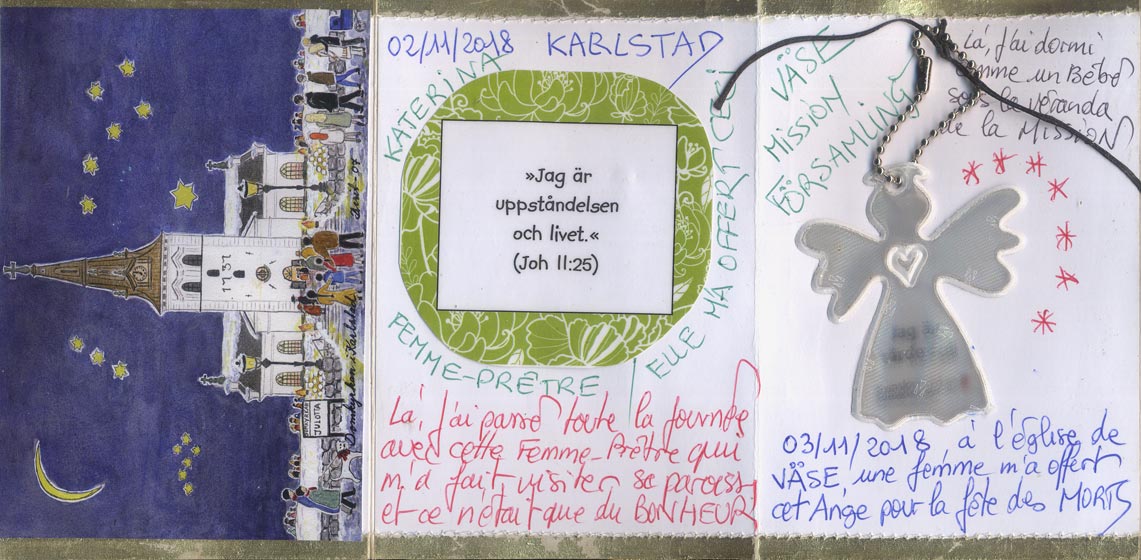 1737
JULOTTA
Domkyrkan i Karlstad
02/11/2018 KARLSTAD
KATERINA
FEMME-PRÊTRE
ELLE MA OFFERT CECI
»Jag är
uppståndelsen
och livet.«
(Joh 11:25)
Là, j'ai passé toute la journée
avec cette Femme-Prêtre qui
m'a fait visiter sa paroiss
et ce n'était que du BONHEUR
VÄSE
MISSION
FÖRSAMLING
Là, j'ai dormi
comme un Bébé
sous la véranda
de la MISSION
Jag är
03/11/2018 à l'église de
VÄSE, une femme m'a offert
cet Ange pour la fête des MORTS